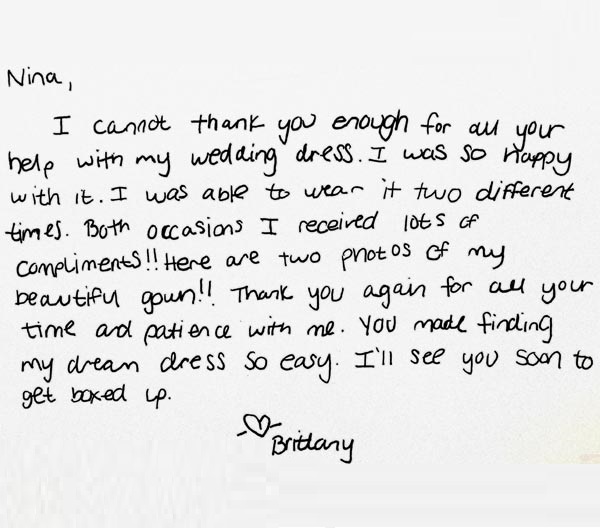 Nina,
I cannot thank you enough for all your
help with my wedding dress. I was so happy
with it. I was able to wear it two different
times. Both occasions I received lots of
compliments!! Here are two photos of my
beautiful gown!! Thank you again for all your
time and patience with me. You made finding
my dream dress so easy. I'll see you soon to
get boxed up.
Brittany